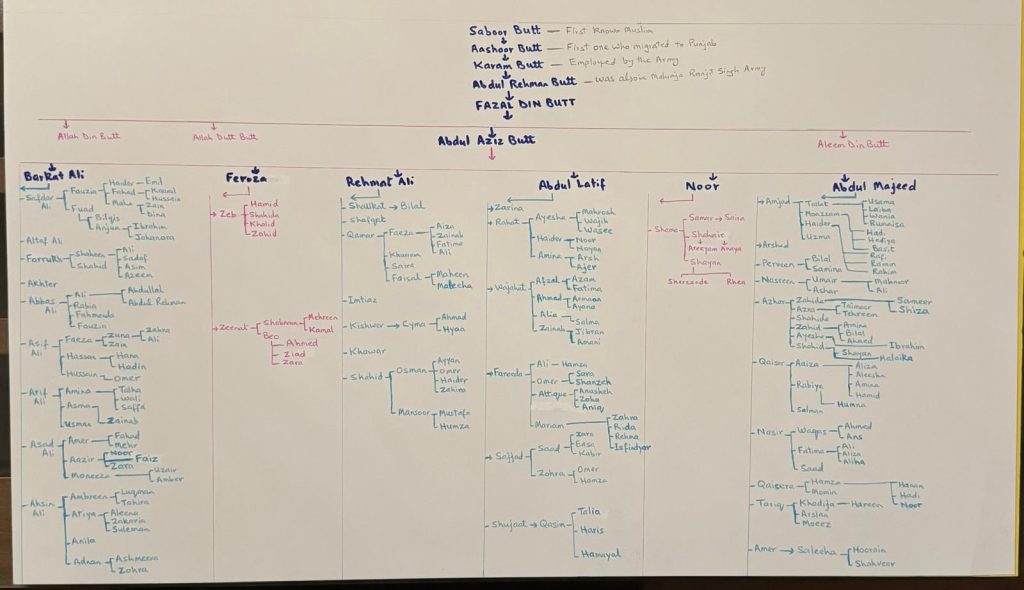 Saboor Butt — First Known Muslim
Aashoor Butt — First one who migrated to Punjab
Karam Butt — Employed by the Army
Abdul Rehman Butt — was also in Maharaja Ranjit Singh Army
FAZAL DIN BUTT
Allah Din Butt
Allah Dutt Butt
Abdul Aziz Butt
Aleem Din Butt
Barkat Ali
Safdar Ali
Fauzia
Haider
Emil
Fahad
Kaamil
Hussein
Maha
Zain
Dina
Fuad
Bilqis
Anjum
Ibrahim
Johanara
Altaf Ali
Farrukh
Shaheen
Shahid
Ali
Sadaf
Asim
Azeem
Akhter
Abbas Ali
Ali
Abdullah
Abdul Rehman
Rabia
Fahmeeda
Fauzia
Asif Ali
Faeza
Zuna
Zahra
Ali
Zain
Hassan
Hana
Hadin
Hussain
Omer
Arif Ali
Amina
Talha
Wali
Saffa
Asma
Zainab
Usman
Asad Ali
Amer
Fahad
Mehr
Aazir
Noor
Faiz
Zara
Moneeza
Uzair
Amber
Ahsin Ali
Ambreen
Luqman
Tahira
Atiya
Aleena
Zakaria
Suleman
Anila
Adnan
Ashmeera
Zohra
Feroza
Zeb
Hamid
Shahida
Khalid
Zahid
Zeenat
Shabnam
Mehreen
Kamal
Beo
Ahmed
Ziad
Zara
Rehmat Ali
Shaukat
Bilal
Shafqat
Qamar
Faeza
Aiza
Zainab
Fatima
Ali
Khurram
Saira
Faisal
Maheen
Maleeha
Imtiaz
Kishwer
Cyma
Ahmad
Hyaa
Khawar
Shahid
Osman
Ayyan
Omer
Haider
Zahira
Mansoor
Mustafa
Humza
Abdul Latif
Zarina
Rahat
Ayesha
Mahrosh
Wajih
Wasee
Haider
Noor
Hoyan
Amina
Arsh
Ajer
Wajahat
Afzal
Azam
Fatima
Ahmed
Armaan
Ayana
Alia
Salma
Zainab
Jibran
Amani
Fareeda
Ali
Hamza
Omer
Sara
Shanzeh
Attique
Anusheh
Zoha
Aniq
Mariam
Zahra
Rida
Rehma
Isfindyar
Sajjad
Saad
Zara
Eesa
Kabir
Zohra
Omer
Hamza
Shujaat
Qasim
Talia
Haris
Hamayal
Noor
Shama
Samar
Saira
Shahnis
Aleeyam
Anaya
Shayan
Sherezade
Rhea
Abdul Majeed
Amjad
Talat
Usama
Laiba
Wania
Runnisa
Moazzam
Hadi
Hadiya
Basit
Haider
Rafi
Ramin
Rahim
Uzma
Arshad
Perveen
Bilal
Samina
Nasreen
Umair
Mahnoor
Ali
Ashar
Azhar
Zahida
Sameer
Shiza
Azra
Taimoor
Tehreem
Shahida
Zahid
Amina
Bilal
Ahmed
Ayesha
Ibrahim
Shahid
Shayan
Malaika
Qaiser
Aaiza
Aliza
Aleesha
Amina
Hamid
Rabiya
Humna
Salman
Nasir
Waqas
Ahmed
Ans
Fatima
Ali
Aliza
Aliha
Saad
Qaisera
Hamza
Hanan
Hadi
Noor
Momin
Tariq
Khadija
Hareem
Arslan
Moeez
Amer
Saleeha
Hoorain
Shahveer